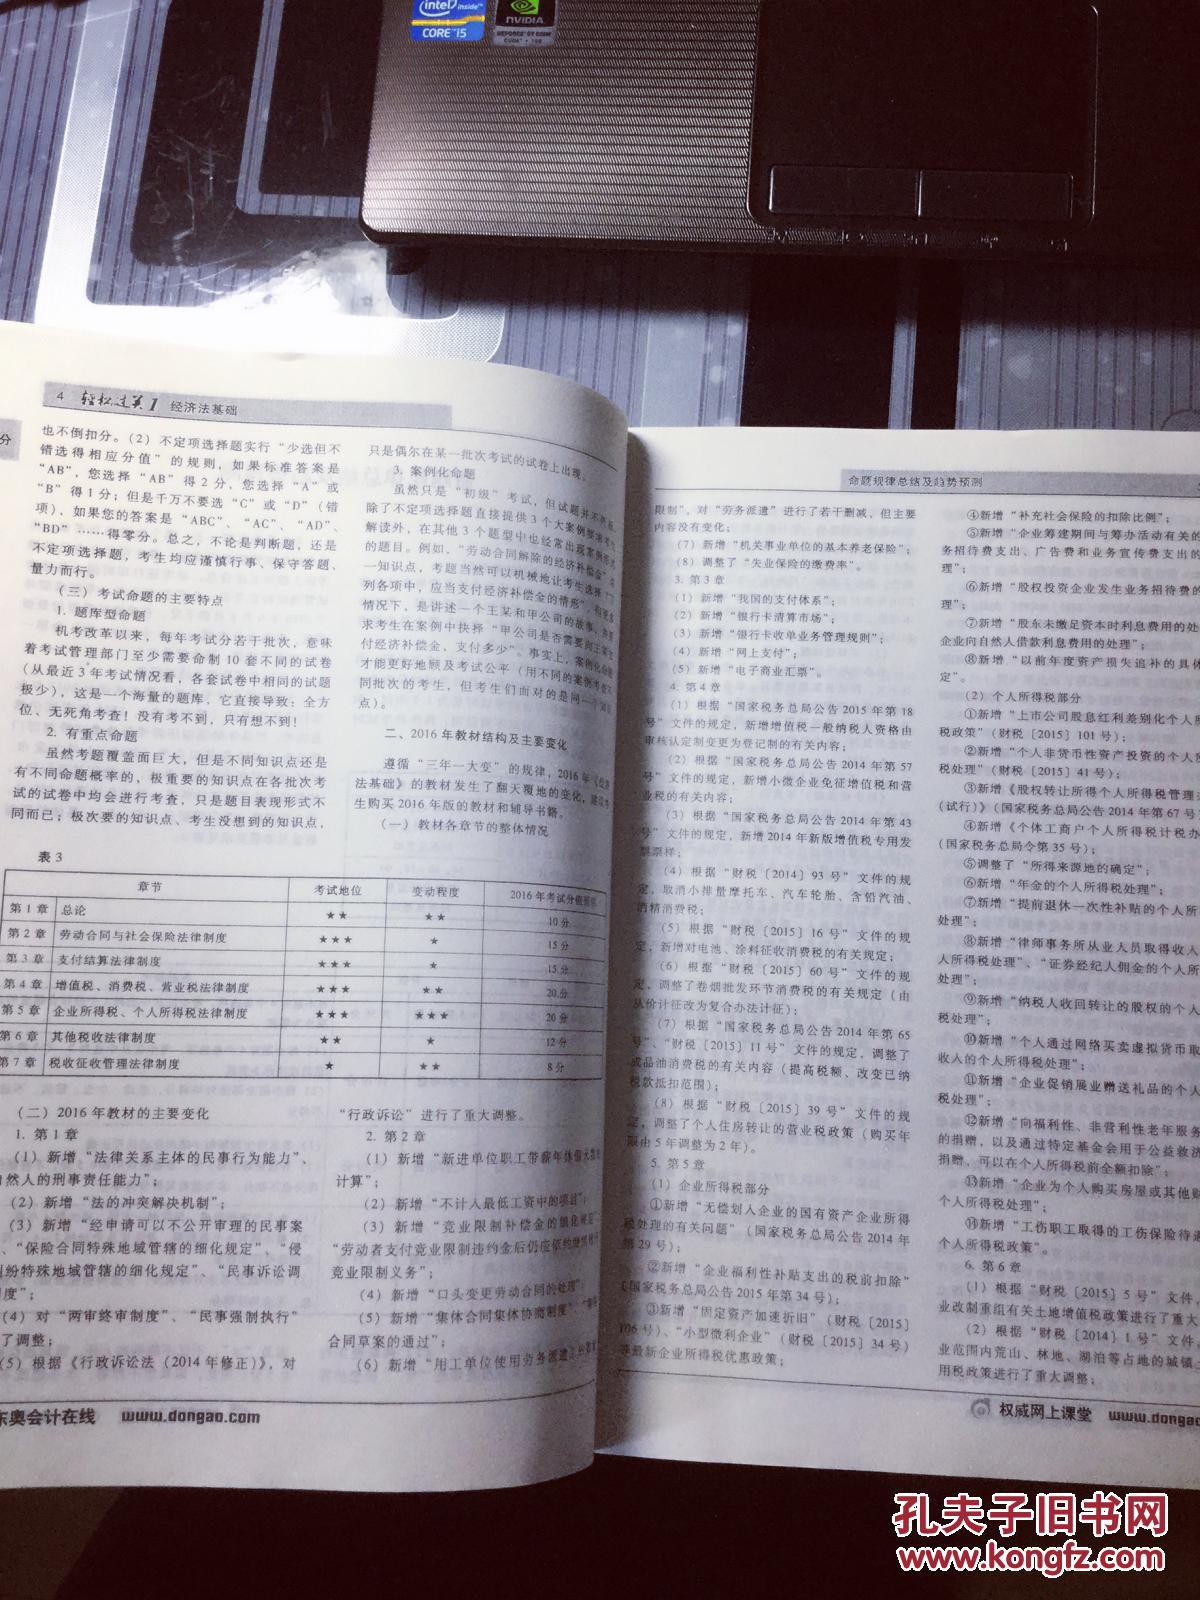 intel inside
CORE i5
NVIDIA
GEFORCE GT 520M
CUDA 1GB
分
4 轻松过关1 经济法基础
也不倒扣分。（2）不定项选择题实行“少选但不
错选得相应分值”的规则，如果标准答案是
“AB”，您选择“AB”得2分，您选择“A”或
“B”得1分；但是千万不要选“C”或“D”（错
项），如果您的答案是“ABC”、“AC”、“AD”、
“BD”……得零分。总之，不论是判断题，还是
不定项选择题，考生均应谨慎行事、保守答题、
量力而行。
（三）考试命题的主要特点
1. 题库型命题
机考改革以来，每年考试分若干批次，意味
着考试管理部门至少需要命制10套不同的试卷
（从最近3年考试情况看，各套试卷中相同的试题
极少），这是一个海量的题库，它直接导致：全方
位、无死角考查！没有考不到，只有想不到！
2. 有重点命题
虽然考题覆盖面巨大，但是不同知识点还是
有不同命题概率的，极重要的知识点在各批次考
试的试卷中均会进行考查，只是题目表现形式不
同而已；极次要的知识点、考生没想到的知识点，
只是偶尔在某一批次考试的试卷上出现。
3. 案例化命题
虽然只是“初级”考试，但试题并不
除了不定项选择题直接提供3个大案例要求考
解读外，在其他3个题型中也经常出现案例形式
的题目。例如，“劳动合同解除的经济补偿金”
一知识点，考题当然可以机械地让考生选择“下
列各项中，应当支付经济补偿金的情形”，
情况下，是讲述一个王某和甲公司的故事，
求考生在案例中抉择“甲公司是否需要向王某支
付经济补偿金，支付多少”。事实上，案例化命题
才能更好地顾及考试公平（用不同的案例考查不
同批次的考生，但考生们面对的是同一个知识
点）。
二、2016年教材结构及主要变化
遵循“三年一大变”的规律，2016年《经济
法基础》的教材发生了翻天覆地的变化，建议考
生购买2016年版的教材和辅导书籍。
（一）教材各章节的整体情况
表3
章节 考试地位 变动程度 2016年考试分值预测
第1章 总论 ★★ ★★ 10分
第2章 劳动合同与社会保险法律制度 ★★★ ★ 15分
第3章 支付结算法律制度 ★★★ ★ 15分
第4章 增值税、消费税、营业税法律制度 ★★★ ★★ 20分
第5章 企业所得税、个人所得税法律制度 ★★★ ★★★ 20分
第6章 其他税收法律制度 ★★ ★ 12分
第7章 税收征收管理法律制度 ★ ★★ 8分
（二）2016年教材的主要变化
1. 第1章
（1）新增“法律关系主体的民事行为能力”、
自然人的刑事责任能力”；
（2）新增“法的冲突解决机制”；
（3）新增“经申请可以不公开审理的民事案
、“保险合同特殊地域管辖的细化规定”、“侵
纠纷特殊地域管辖的细化规定”、“民事诉讼调
度”；
（4）对“两审终审制度”、“民事强制执行”
了调整；
（5）根据《行政诉讼法（2014年修正）》，对
“行政诉讼”进行了重大调整。
2. 第2章
（1）新增“新进单位职工带薪年休假天数的
计算”；
（2）新增“不计入最低工资中的项目”；
（3）新增“竞业限制补偿金的细化规定”、
“劳动者支付竞业限制违约金后仍应依约继续履行
竞业限制义务”；
（4）新增“口头变更劳动合同的处理”；
（5）新增“集体合同集体协商制度”、
合同草案的通过”；
（6）新增“用工单位使用劳务派遣工的数量
东奥会计在线 www.dongao.com
命题规律总结及趋势预测 5
限制”，对“劳务派遣”进行了若干删减，但主要
内容没有变化；
（7）新增“机关事业单位的基本养老保险”；
（8）调整了“失业保险的缴费率”。
3. 第3章
（1）新增“我国的支付体系”；
（2）新增“银行卡清算市场”；
（3）新增“银行卡收单业务管理规则”；
（4）新增“网上支付”；
（5）新增“电子商业汇票”。
4. 第4章
（1）根据“国家税务总局公告2015年第18
号”文件的规定，新增增值税一般纳税人资格由
审核认定制变更为登记制的有关内容；
（2）根据“国家税务总局公告2014年第57
号”文件的规定，新增小微企业免征增值税和营
业税的有关内容；
（3）根据“国家税务总局公告2014年第43
号”文件的规定，新增2014年新版增值税专用发
票票样；
（4）根据“财税〔2014〕93号”文件的规
定，取消小排量摩托车、汽车轮胎、含铅汽油、
酒精消费税；
（5）根据“财税〔2015〕16号”文件的规
定，新增对电池、涂料征收消费税的有关规定；
（6）根据“财税〔2015〕60号”文件的规
定，调整了卷烟批发环节消费税的有关规定（由
从价计征改为复合办法计征）；
（7）根据“国家税务总局公告2014年第65
号”、“财税〔2015〕11号”文件的规定，调整了
成品油消费税的有关内容（提高税额、改变已纳
税款抵扣范围）；
（8）根据“财税〔2015〕39号”文件的规
定，调整了个人住房转让的营业税政策（购买年
限由5年调整为2年）。
5. 第5章
（1）企业所得税部分
①新增“无偿划入企业的国有资产企业所得
税处理的有关问题”（国家税务总局公告2014年
第29号）；
②新增“企业福利性补贴支出的税前扣除”
（国家税务总局公告2015年第34号）；
③新增“固定资产加速折旧”（财税〔2015〕
106号）、“小型微利企业”（财税〔2015〕34号）
等最新企业所得税优惠政策；
④新增“补充社会保险的扣除比例”；
⑤新增“企业筹建期间与筹办活动有关的
务招待费支出、广告费和业务宣传费支出的
理”；
⑥新增“股权投资企业发生业务招待费的
理”；
⑦新增“股东未缴足资本时利息费用的处
企业向自然人借款利息费用的处理”；
⑧新增“以前年度资产损失追补的具体
定”。
（2）个人所得税部分
①新增“上市公司股息红利差别化个人所
税政策”（财税〔2015〕101号）；
②新增“个人非货币性资产投资的个人
税处理”（财税〔2015〕41号）；
③新增《股权转让所得个人所得税管理
（试行）》（国家税务总局公告2014年第67号
④新增《个体工商户个人所得税计税办
（国家税务总局令第35号）；
⑤调整了“所得来源地的确定”；
⑥新增“年金的个人所得税处理”；
⑦新增“提前退休一次性补贴的个人所
处理”；
⑧新增“律师事务所从业人员取得收入
人所得税处理”、“证券经纪人佣金的个人所
处理”；
⑨新增“纳税人收回转让的股权的个人
税处理”；
⑩新增“个人通过网络买卖虚拟货币取
收入的个人所得税处理”；
⑪新增“企业促销展业赠送礼品的个人
税处理”；
⑫新增“向福利性、非营利性老年服务
的捐赠，以及通过特定基金会用于公益救济
捐赠，可以在个人所得税前全额扣除”；
⑬新增“企业为个人购买房屋或其他财
个人所得税处理”；
⑭新增“工伤职工取得的工伤保险待遇
个人所得税政策”。
6. 第6章
（1）根据“财税〔2015〕5号”文件，
业改制重组有关土地增值税政策进行了重大
（2）根据“财税〔2014〕1号”文件，
业范围内荒山、林地、湖泊等占地的城镇土
用税政策进行了重大调整；
权威网上课堂 www.dongao
孔夫子旧书网
www.kongfz.com